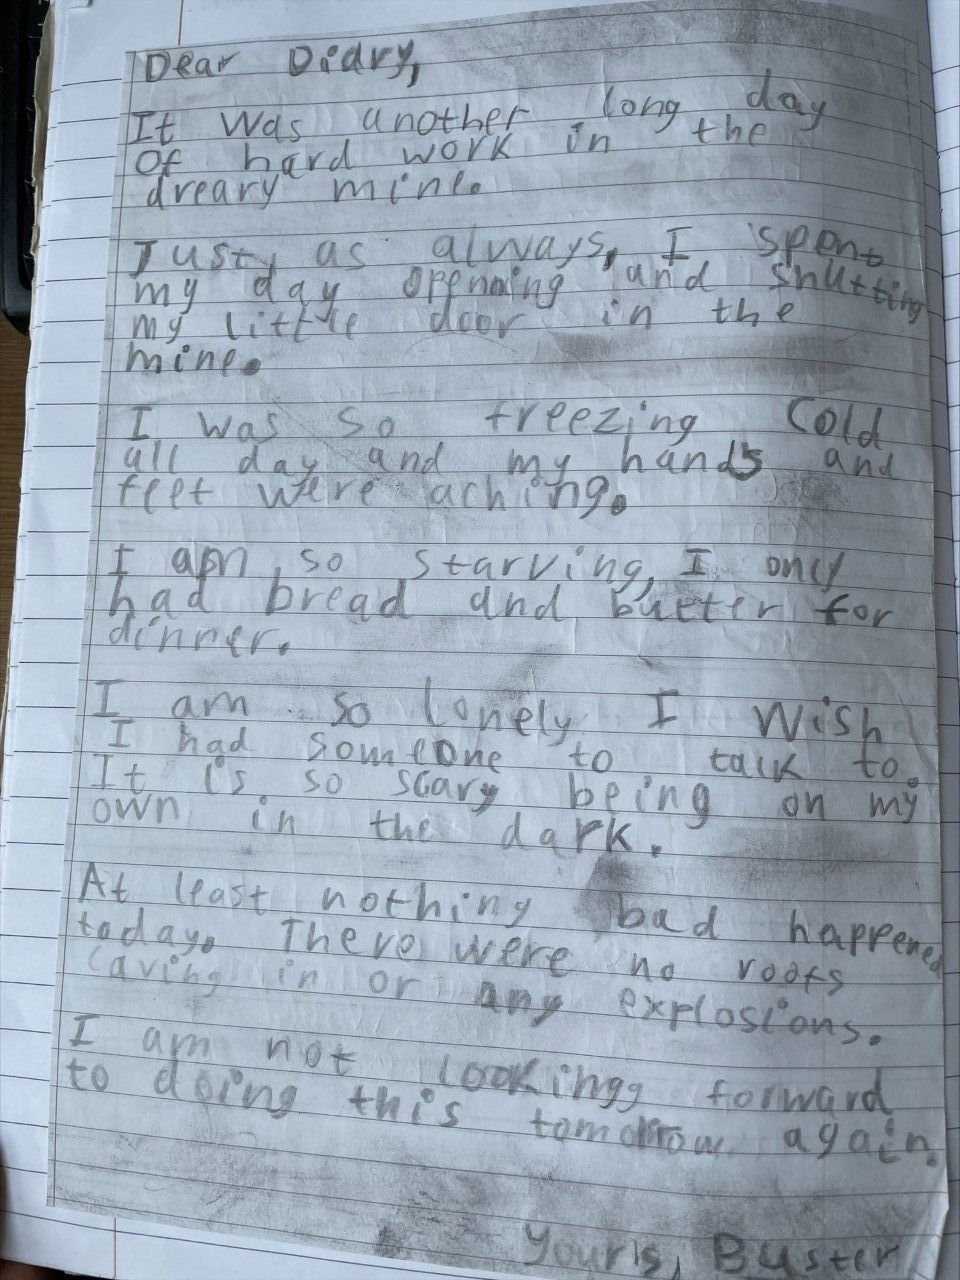 Dear Diary,
It was another long day
Of hard work in the
dreary mine.
Just, as always, I spent
my day oppening and shutting
my little door in the
mine.
I was so freezing Cold
all day and my hands and
feet were aching.
I am so starving, I only
had bread and butter for
dinner.
I am so lonely I wish
I had someone to talk to.
It is so scary being on my
own in the dark.
At least nothing bad happened
today. There were no roofs
caving in or any explosions.
I am not lookingg forward
to doing this tomorrow again.
Yours, Buster